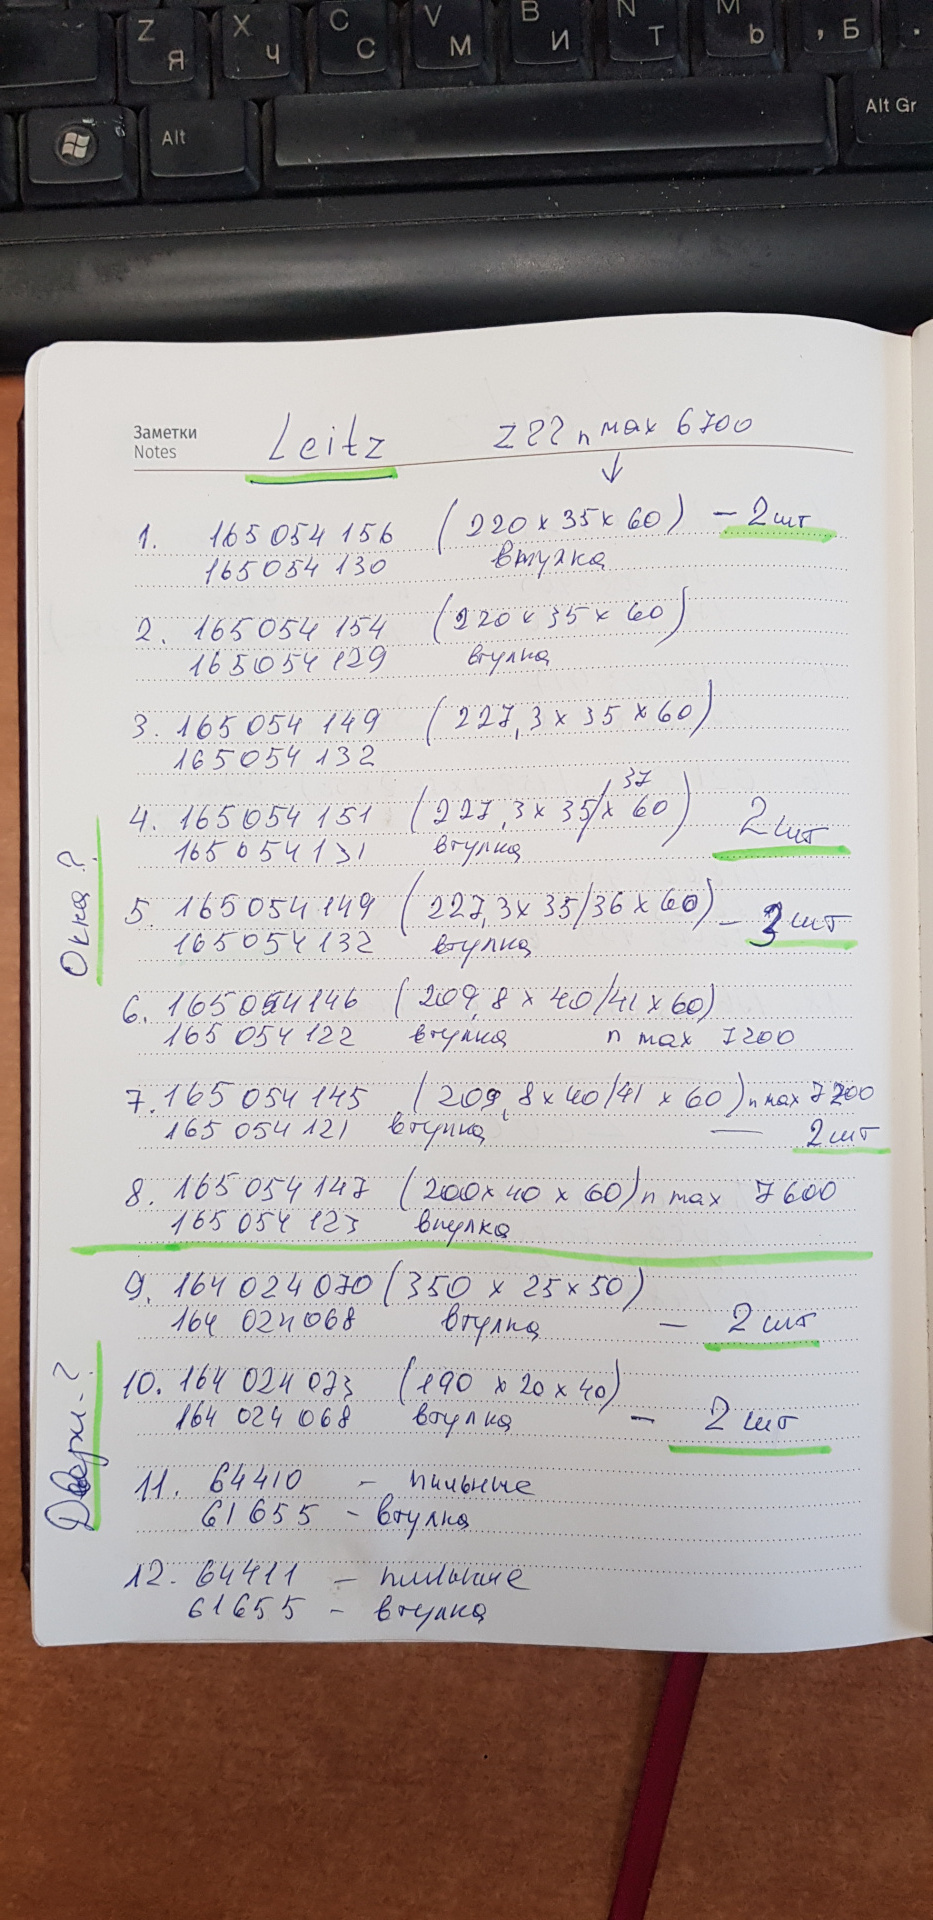 Z
Я
X
Ч
C
С
V
М
B
И
N
Т
M
Ь
, Б
.
Alt
Alt Gr
Заметки
Notes
Leitz
Z22 n max 6700
1. 165 054 156 (220 x 35 x 60) - 2 шт
165054 130 втулка
2. 165 054 154 (220 x 35 x 60)
165054 129 втулка
3. 165 054 149 (227,3 x 35 x 60)
165054 132
37
4. 165 054 151 (227,3 x 35/x 60) 2 шт
165 054 131 втулка
5. 165 054 149 (227,3 x 35/36 x 60) - 3 шт
165 054 132 втулка
6. 165 054 146 (209,8 x 40/41 x 60)
165 054 122 втулка n max 7200
7. 165 054 145 (209,8 x 40/41 x 60) n max 7200
165 054 121 втулка — 2 шт
8. 165 054 147 (200 x 40 x 60) n max 7600
165 054 123 втулка
Окна?
9. 164 024 070 (350 x 25 x 50)
164 024 068 втулка - 2 шт
10. 164 024 073 (190 x 20 x 40)
164 024 068 втулка - 2 шт
11. 64410 - пильные
61655 - втулка
12. 64411 - пильные
61655 - втулка
Двери-?